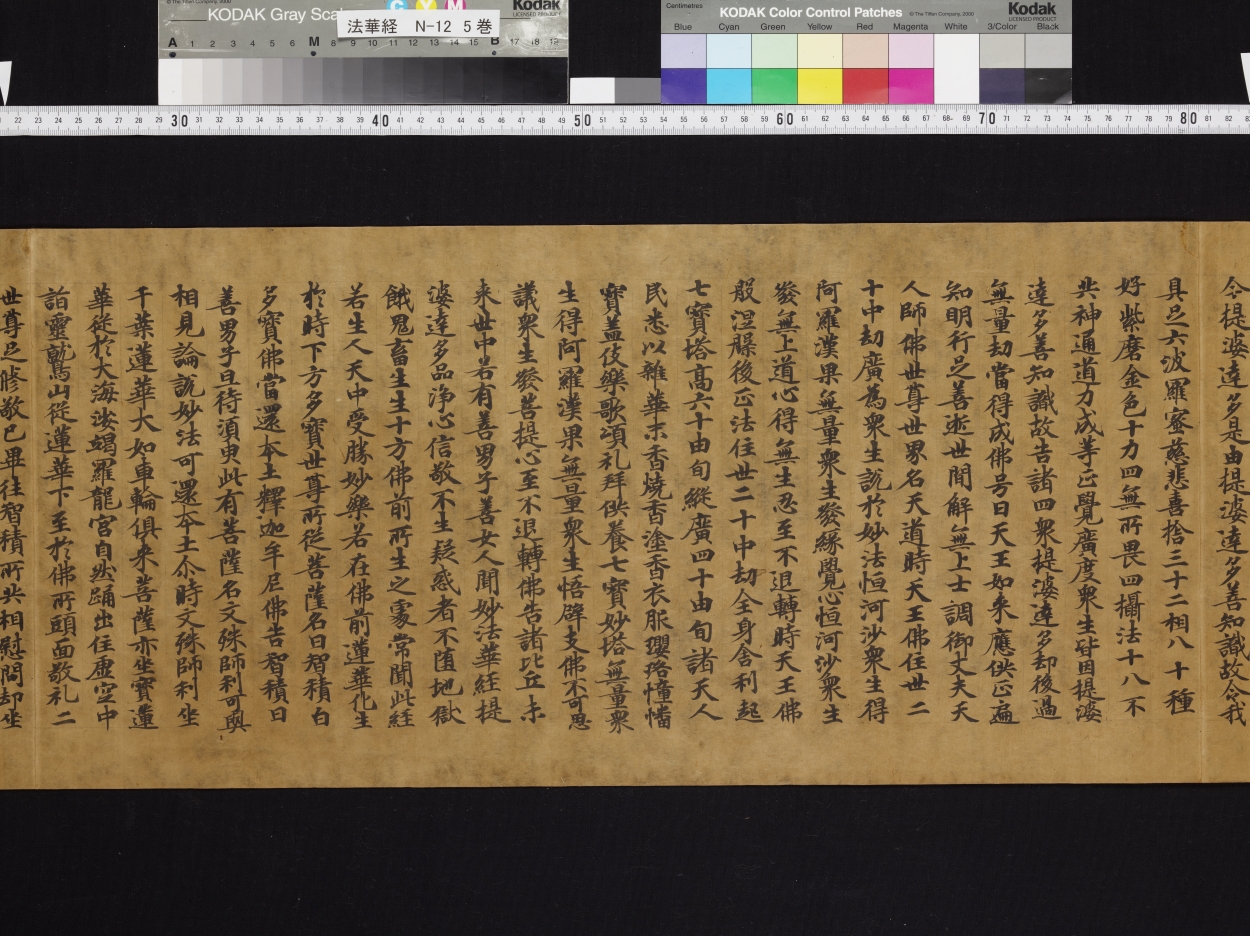 KODAK Gray Scale
C Y M
Kodak
LICENSED PRODUCT
© The Tiffen Company, 2000
A 1 2 3 4 5 6 M 8 9 10 11 12 13 14 15 B 17 18 19
法華経 N-12 5巻
Centimetres
KODAK Color Control Patches
© The Tiffen Company, 2000
Kodak
LICENSED PRODUCT
Blue Cyan Green Yellow Red Magenta White 3/Color Black
22 23 24 25 26 27 28 29 30 31 32 33 34 35 36 37 38 39 40 41 42 43 44 45 46 47 48 49 50 51 52 53 54 55 56 57 58 59 60 61 62 63 64 65 66 67 68 69 70 71 72 73 74 75 76 77 78 79 80 81 82
令提婆達多是由提婆達多善知識故令我
具足六波羅蜜慈悲喜捨三十二相八十種
好紫磨金色十力四無所畏四攝法十八不
共神通道力成等正覺廣度衆生皆因提婆
達多善知識故告諸四衆提婆達多却後過
無量劫當得成佛号曰天王如來應供正遍
知明行足善逝世間解無上士調御丈夫天
人師佛世尊世界名天道時天王佛住世二
十中劫廣為衆生說於妙法恒河沙衆生得
阿羅漢果無量衆生發緣覺心恒河沙衆生
發無上道心得無生忍至不退轉時天王佛
般涅槃後正法住世二十中劫全身舍利起
七寶塔高六十由旬縱廣四十由旬諸天人
民悉以雜華末香燒香塗香衣服瓔珞幢幡
寶蓋伎樂歌頌礼拜供養七寶妙塔無量衆
生得阿羅漢果無量衆生悟辟支佛不可思
議衆生發菩提心至不退轉佛告諸比丘未
来世中若有善男子善女人聞妙法華経提
婆達多品淨心信敬不生疑惑者不墮地獄
餓鬼畜生生十方佛前所生之處常聞此経
若生人天中受勝妙樂若在佛前蓮華化生
於時下方多寶世尊所從菩薩名曰智積白
多寶佛當還本土釋迦牟尼佛告智積曰
善男子且待須臾此有菩薩名文殊師利可與
相見論說妙法可還本土尒時文殊師利坐
千葉蓮華大如車輪俱来菩薩亦坐寶蓮
華從於大海娑竭羅龍宮自然踊出住虛空中
詣靈鷲山從蓮華下至於佛所頭面敬礼二
世尊足脩敬已畢往智積所共相慰問却坐